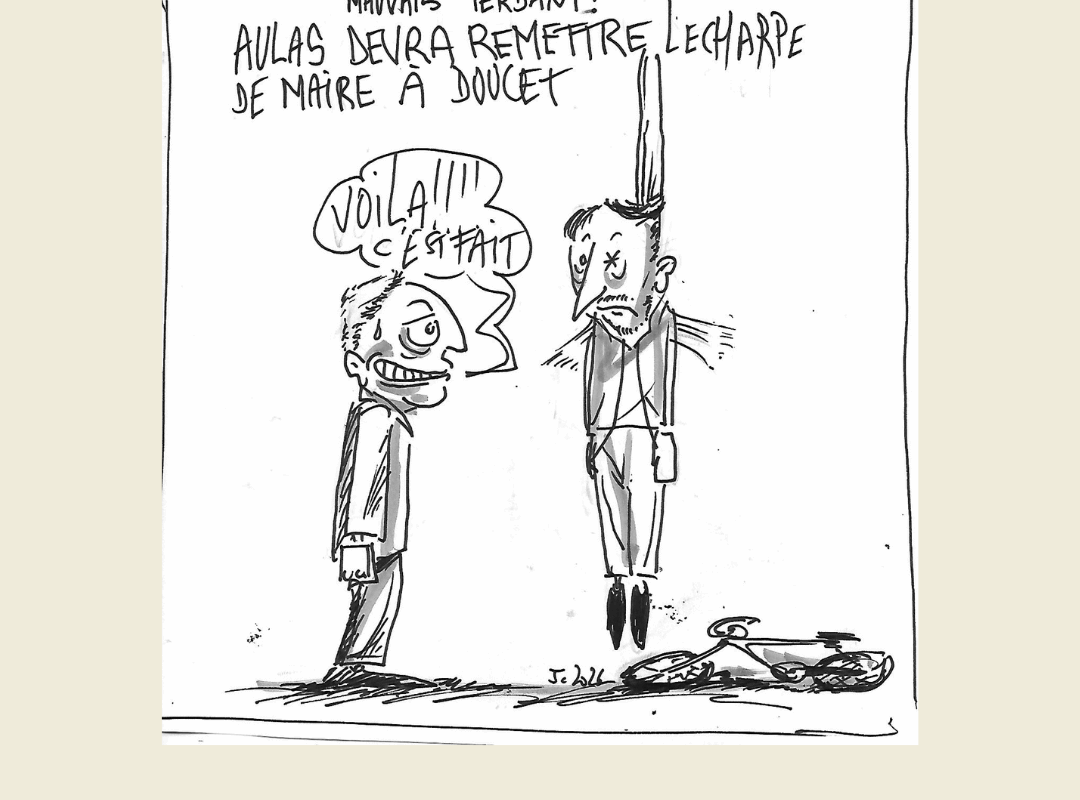 MAUVAIS PERDANT:
AULAS DEVRA REMETTRE LECHARPE
DE MAIRE À DOUCET
VOILA!!!!
C'EST FAIT
J. 2026